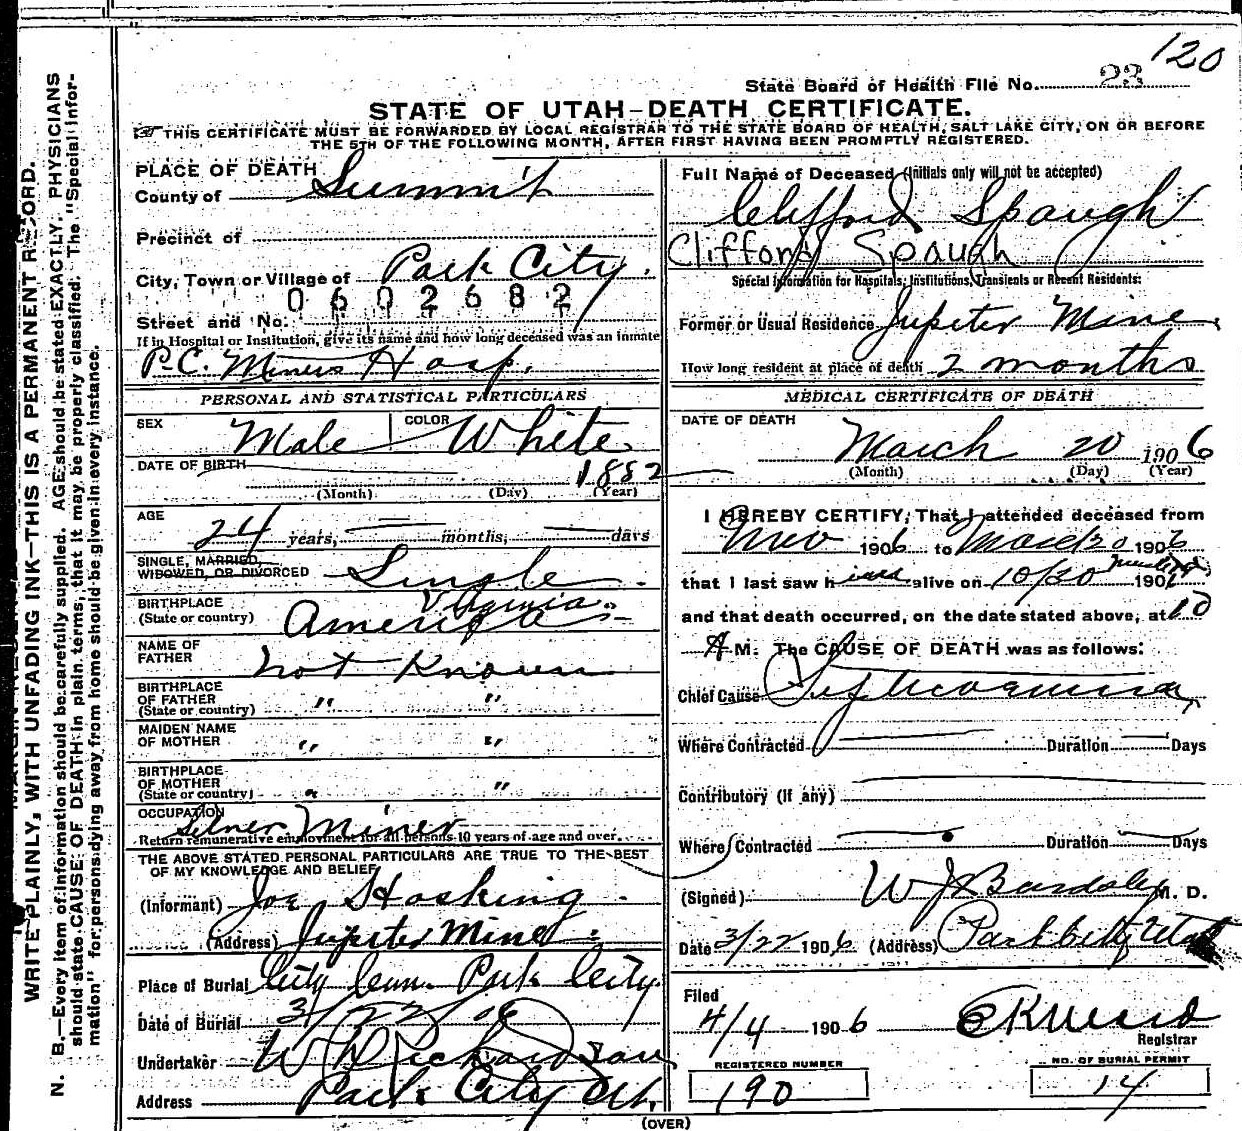 120
State Board of Health File No. 23
STATE OF UTAH—DEATH CERTIFICATE.
THIS CERTIFICATE MUST BE FORWARDED BY LOCAL REGISTRAR TO THE STATE BOARD OF HEALTH, SALT LAKE CITY, ON OR BEFORE
THE 5TH OF THE FOLLOWING MONTH, AFTER FIRST HAVING BEEN PROMPTLY REGISTERED.
WRITE PLAINLY, WITH UNFADING INK—THIS IS A PERMANENT RECORD.
N. B.—Every item of information should be carefully supplied. AGE should be stated EXACTLY. PHYSICIANS
should state CAUSE OF DEATH in plain terms, that it may be properly classified. The "Special Infor-
mation" for persons dying away from home should be given in every instance.
PLACE OF DEATH
County of Summit
Precinct of
City, Town or Village of Park City.
0602682
Street and No.
If in Hospital or Institution, give its name and how long deceased was an inmate
P.C. Miners Hosp.
PERSONAL AND STATISTICAL PARTICULARS
SEX Male COLOR White
DATE OF BIRTH 1882
(Month) (Day) (Year)
AGE
24 years, months, days
SINGLE, MARRIED,
WIDOWED, OR DIVORCED Single
BIRTHPLACE Virginia
(State or country) America
NAME OF
FATHER not Known
BIRTHPLACE
OF FATHER " "
(State or country)
MAIDEN NAME
OF MOTHER " "
BIRTHPLACE
OF MOTHER " "
(State or country)
OCCUPATION Silver Miner
Return remunerative employment for all persons 10 years of age and over.
THE ABOVE STATED PERSONAL PARTICULARS ARE TRUE TO THE BEST
OF MY KNOWLEDGE AND BELIEF
(Informant) Joe Hosking
(Address) Jupiter Mine.
Place of Burial City Cem. Park City.
Date of Burial 3/22/06
Undertaker W Richardson
Address Park City Ut.
Full Name of Deceased (Initials only will not be accepted)
Clifford Spaugh
Clifford Spaugh
Special Information for Hospitals, Institutions, Transients or Recent Residents:
Former or Usual Residence Jupiter Mine.
How long resident at place of death 2 months
MEDICAL CERTIFICATE OF DEATH
DATE OF DEATH
March 20 1906
(Month) (Day) (Year)
I HEREBY CERTIFY, That I attended deceased from
1906 to March 20 1906
that I last saw h alive on 10/20 1906
and that death occurred, on the date stated above, at 10
A M. The CAUSE OF DEATH was as follows:
Chief Cause Septicaemia
Where Contracted Duration Days
Contributory (if any)
Where Contracted Duration Days
(Signed) W J Bardsley M. D.
Date 3/22 1906 (Address) Park City Utah
Filed
4/4 1906
Registrar
REGISTERED NUMBER NO. OF BURIAL PERMIT
190 14
(OVER)